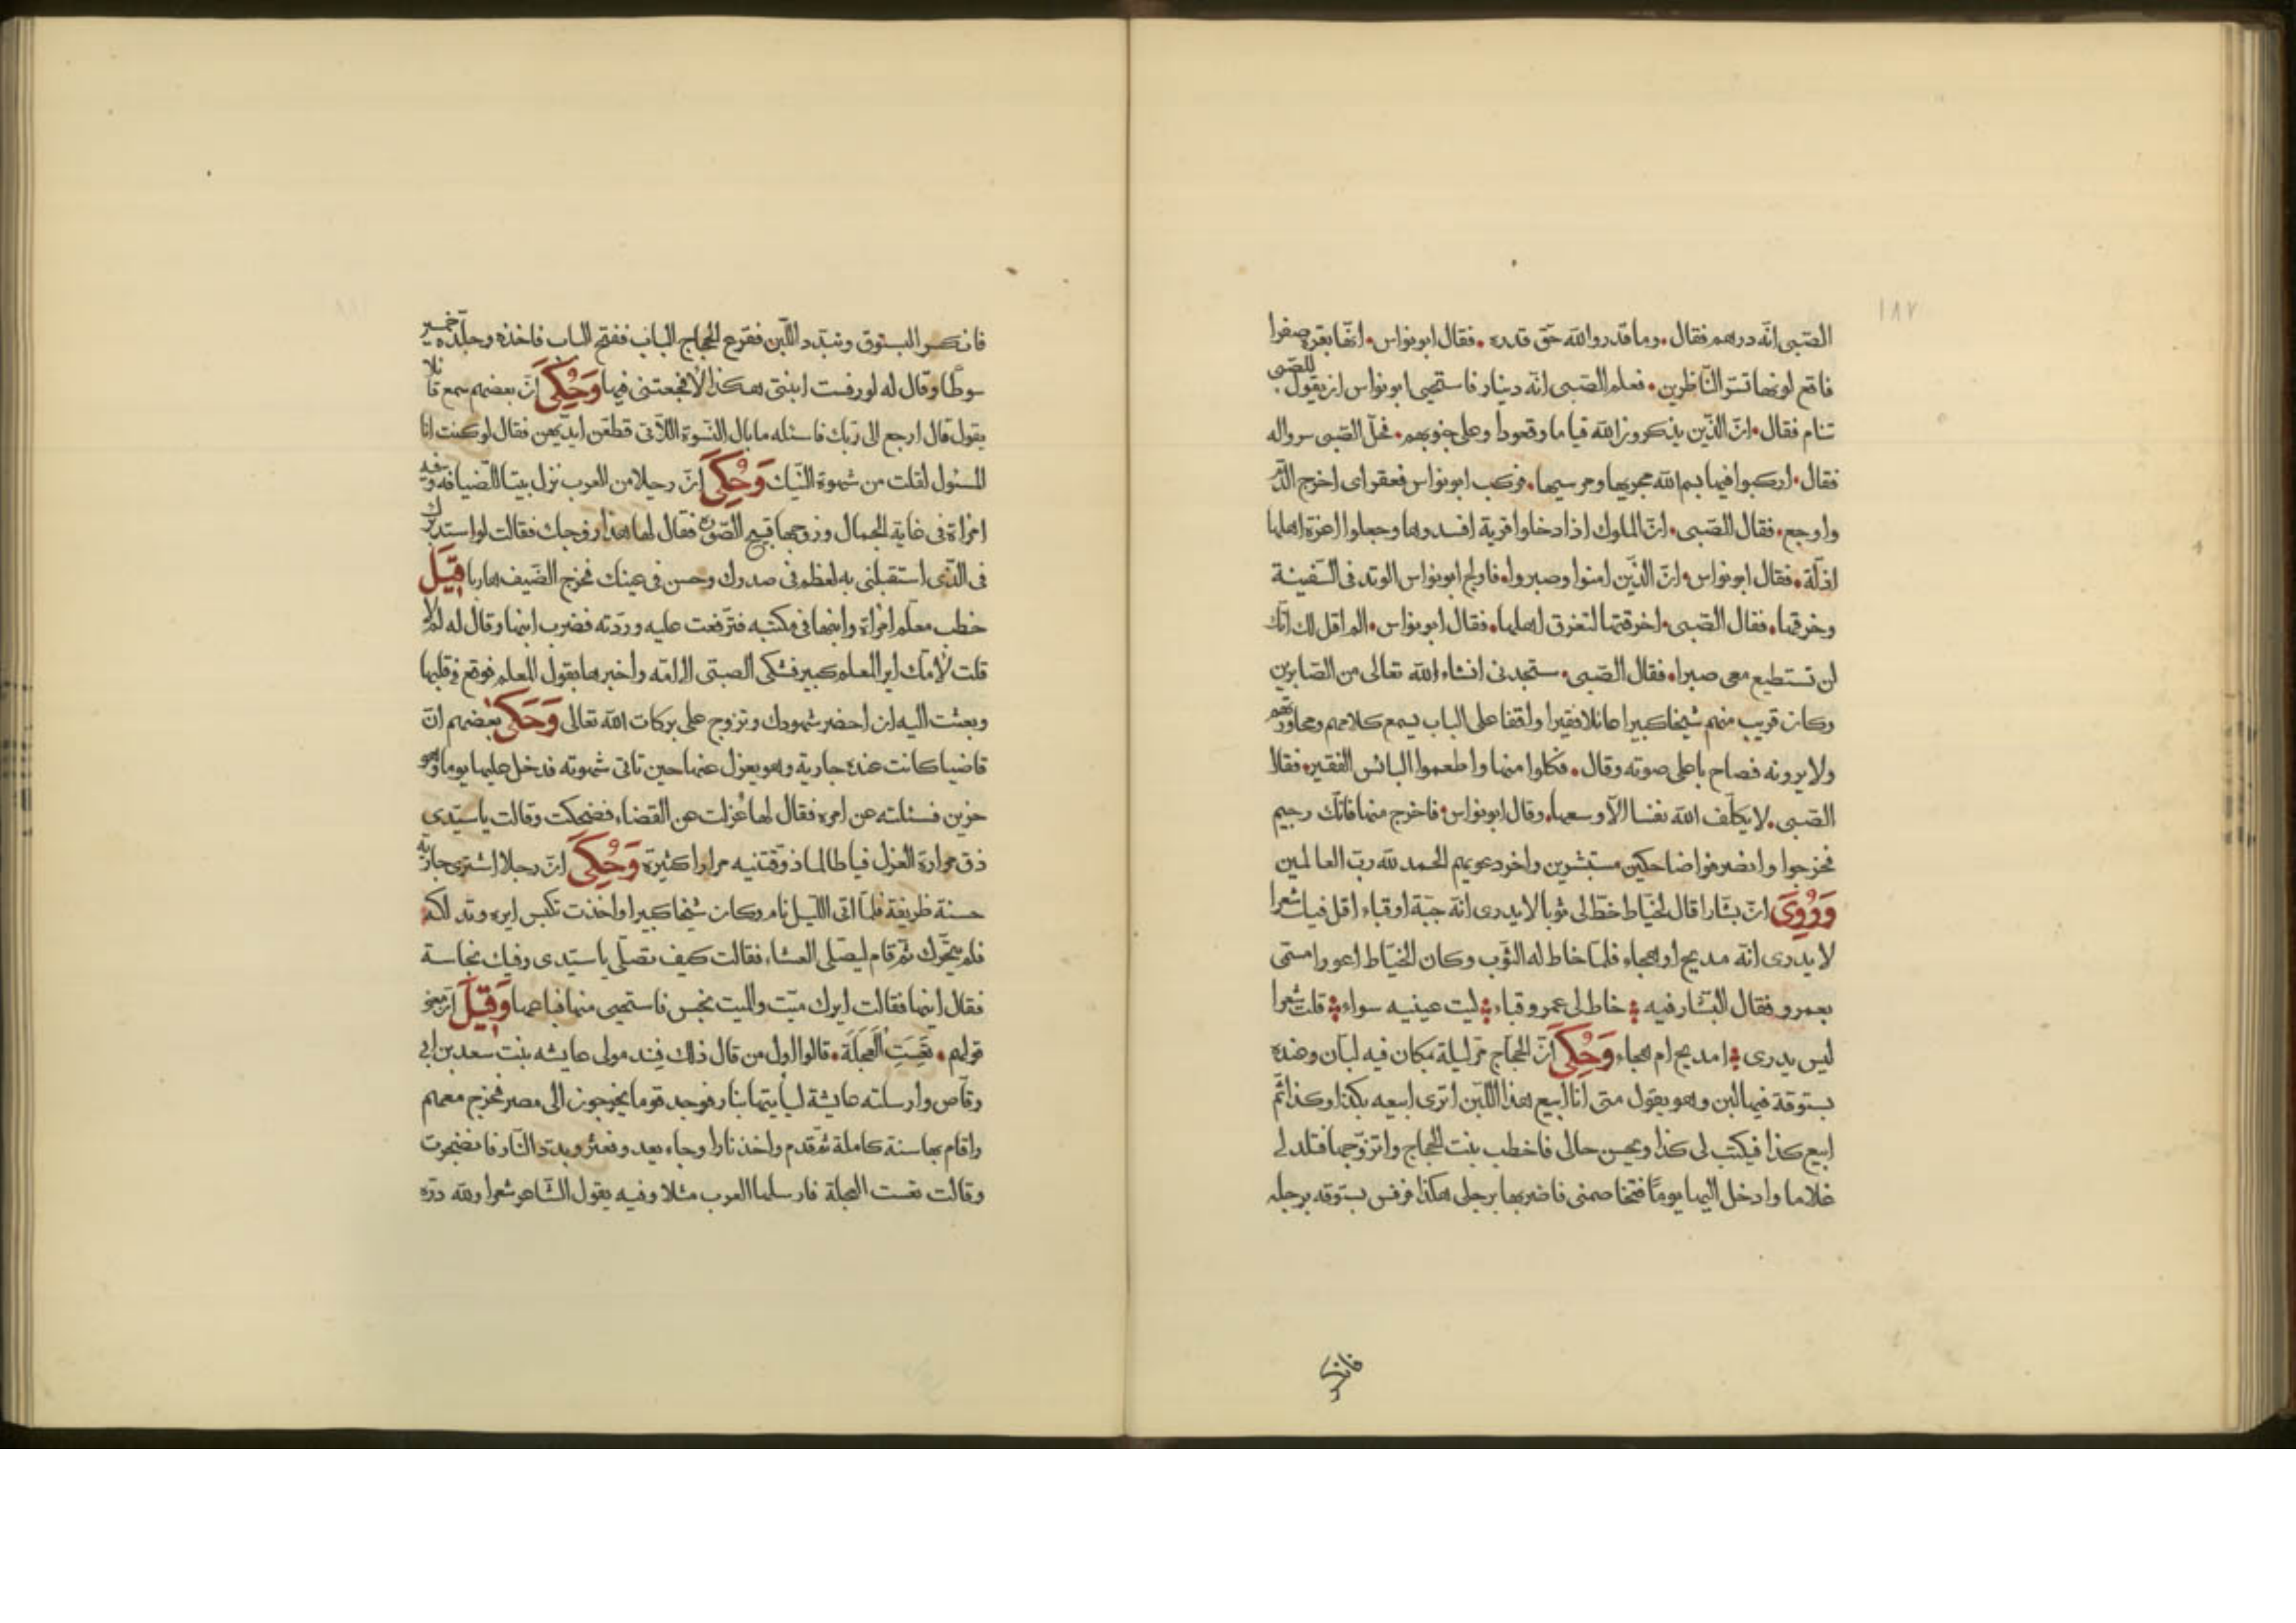 ١٨٧
الصّبى انّه درهم فقال وما قدروا الله حقّ قدره فقال ابو نواس انّها بقرة صفرا
فاقع لونها تسرّ النّاظرين فعلم الصّبى انّه دينار فاستحيى ابو نواس ان يقول للصّبى
تنام فقال انّ الّذين يذكرون الله قياما وقعودا وعلى جنوبهم فحلّ الصّبى سرواله
فقال اركبوا فيها بسم الله مجريها ومرسيها فركب ابو نواس فعقر اى اخرج الدّم
واوجع فقال الصّبى انّ الملوك اذا دخلوا قرية افسدوها وجعلوا اعزة اهلها
اذلّة فقال ابو نواس انّ الّذين امنوا وصبروا فاولج ابو نواس الوتد فى السّفينة
وخرقها فقال الصّبى اخرقتها لتغرق اهلها فقال ابو نواس الم اقل لك انّك
لن تستطيع معى صبرا فقال الصّبى ستجدنى انشاء الله تعالى من الصّابرين
وكان قريب منهم شيخا كبيرا عائلا فقيرا واقفا على الباب يسمع كلامهم ومحاورتهم
ولا يرونه فصاح باعلى صوته وقال فكلوا منها واطعموا البائس الفقير فقال
الصّبى لا يكلّف الله نفسا الّا وسعها وقال ابو نواس فاخرج منها فانّك رجيم
فخرجوا وانصرفوا ضاحكين مستبشرين واخر دعويهم الحمد لله ربّ العالمين
وَرُوِىَ انّ بشّارا قال لخيّاط خطّ لى ثوبا لا يدرى انّه جبّة او قباء اقل فيك شعرا
لا يدرى انّه مديح او هجاء فلمّا خاط له الثّوب وكان الخيّاط اعور امسمّى
بعمرو فقال البشّار فيه خاط لى عمرو قباء ليت عينيه سواء قلت شعرا
ليس يدرى امديح ام هجاء وَحُكِىَ انّ الحجّاج مرّ ليلة بمكان فيه لبّان وعنده
بستوقة فيها لبن وهو يقول متى انا ابيع هذا اللّبن اترى ابيعه بكذا وكذا ثمّ
ابيع كذا فيكتب لى كذا ويحسن حالى فاخطب بنت الحجّاج واتزوّجها فتلد لى
غلاما وادخل اليها يوما فتخاصمنى فاضربها برجلى هكذا فرفس بستوقه برجله
فانكسر
فانكسر البستوق وتبدّد اللّبن فقرع الحجّاج الباب ففتح الباب فاخذه وجلّده خمسين
سوطا وقال له لو رفست ابنتى هكذا الا فجعتنى فيها وَحُكِىَ انّ بعضهم سمع قائلا
يقول قال ارجع الى ربّك فاسئله ما بال النّسوة اللّاتى قطّعن ايديهنّ فقال لو كنت انا
المسئول لقلت من شهوة النّيك وَحُكِىَ انّ رجلا من العرب نزل بيتا للضّيافة وفيه
امراة فى غاية الجمال وزوجها قبيح الصّورة فقال لها هذا زوجك فقالت لو استدبرك
فى الّذى استقبلنى به لعظم فى صدرك وحسن فى عينك فخرج الضّيف هاربا قِيلَ
خطب معلّم امراة وابنها فى مكتبه فترفّعت عليه وردّته فضرب ابنها وقال له لم لا
قلت لامّك اير المعلم كبير فشكى الصبىّ الى امّه واخبرها بقول المعلم فوقع فى قلبها
وبعثت اليه ان احضر شهودك وتزوج على بركات الله تعالى وَحَكَى بعضهم انّ
قاضيا كانت عنده جارية وهو يعزل عنها حين تاتى شهوته فدخل عليها يوما وهو
حزين فسئلته عن امره فقال لها عُزلت عن القضاء فضحكت وقالت يا سيّدى
ذق مرارة العزل فيا طالما ذوّقتنيه مرارا كثيرة وَحُكِىَ انّ رجلا اشترى جارية
حسنة ظريفة فلمّا اتى اللّيل نام وكان شيخا كبيرا واخذت تكبس ايره وتدلكه
فلم يتحرّك ثمّ قام ليصلّى العشاء فقالت كيف تصلّى يا سيّدى وفيك نجاسة
فقال اينها فقالت ايرك ميّت والميت نجس فاستحيى منها فباعها وَقِيلَ انّ معنى
قولهم تَعِسَتِ الْعَجَلَة قالوا اول من قال ذلك فند مولى عايشه بنت سعد بن ابى
وقّاص وارسلته عايشة ليأتيها بنار فوجد قوما يخرجون الى مصر فخرج معهم
واقام بها سنة كاملة ثمّ قدم واخذ نارا وجاء يعدو فعثر وبدّد النّار فانضجرت
وقالت تعست العجلة فارسلها العرب مثلا وفيه يقول الشّاعر شعرا ولله درّه